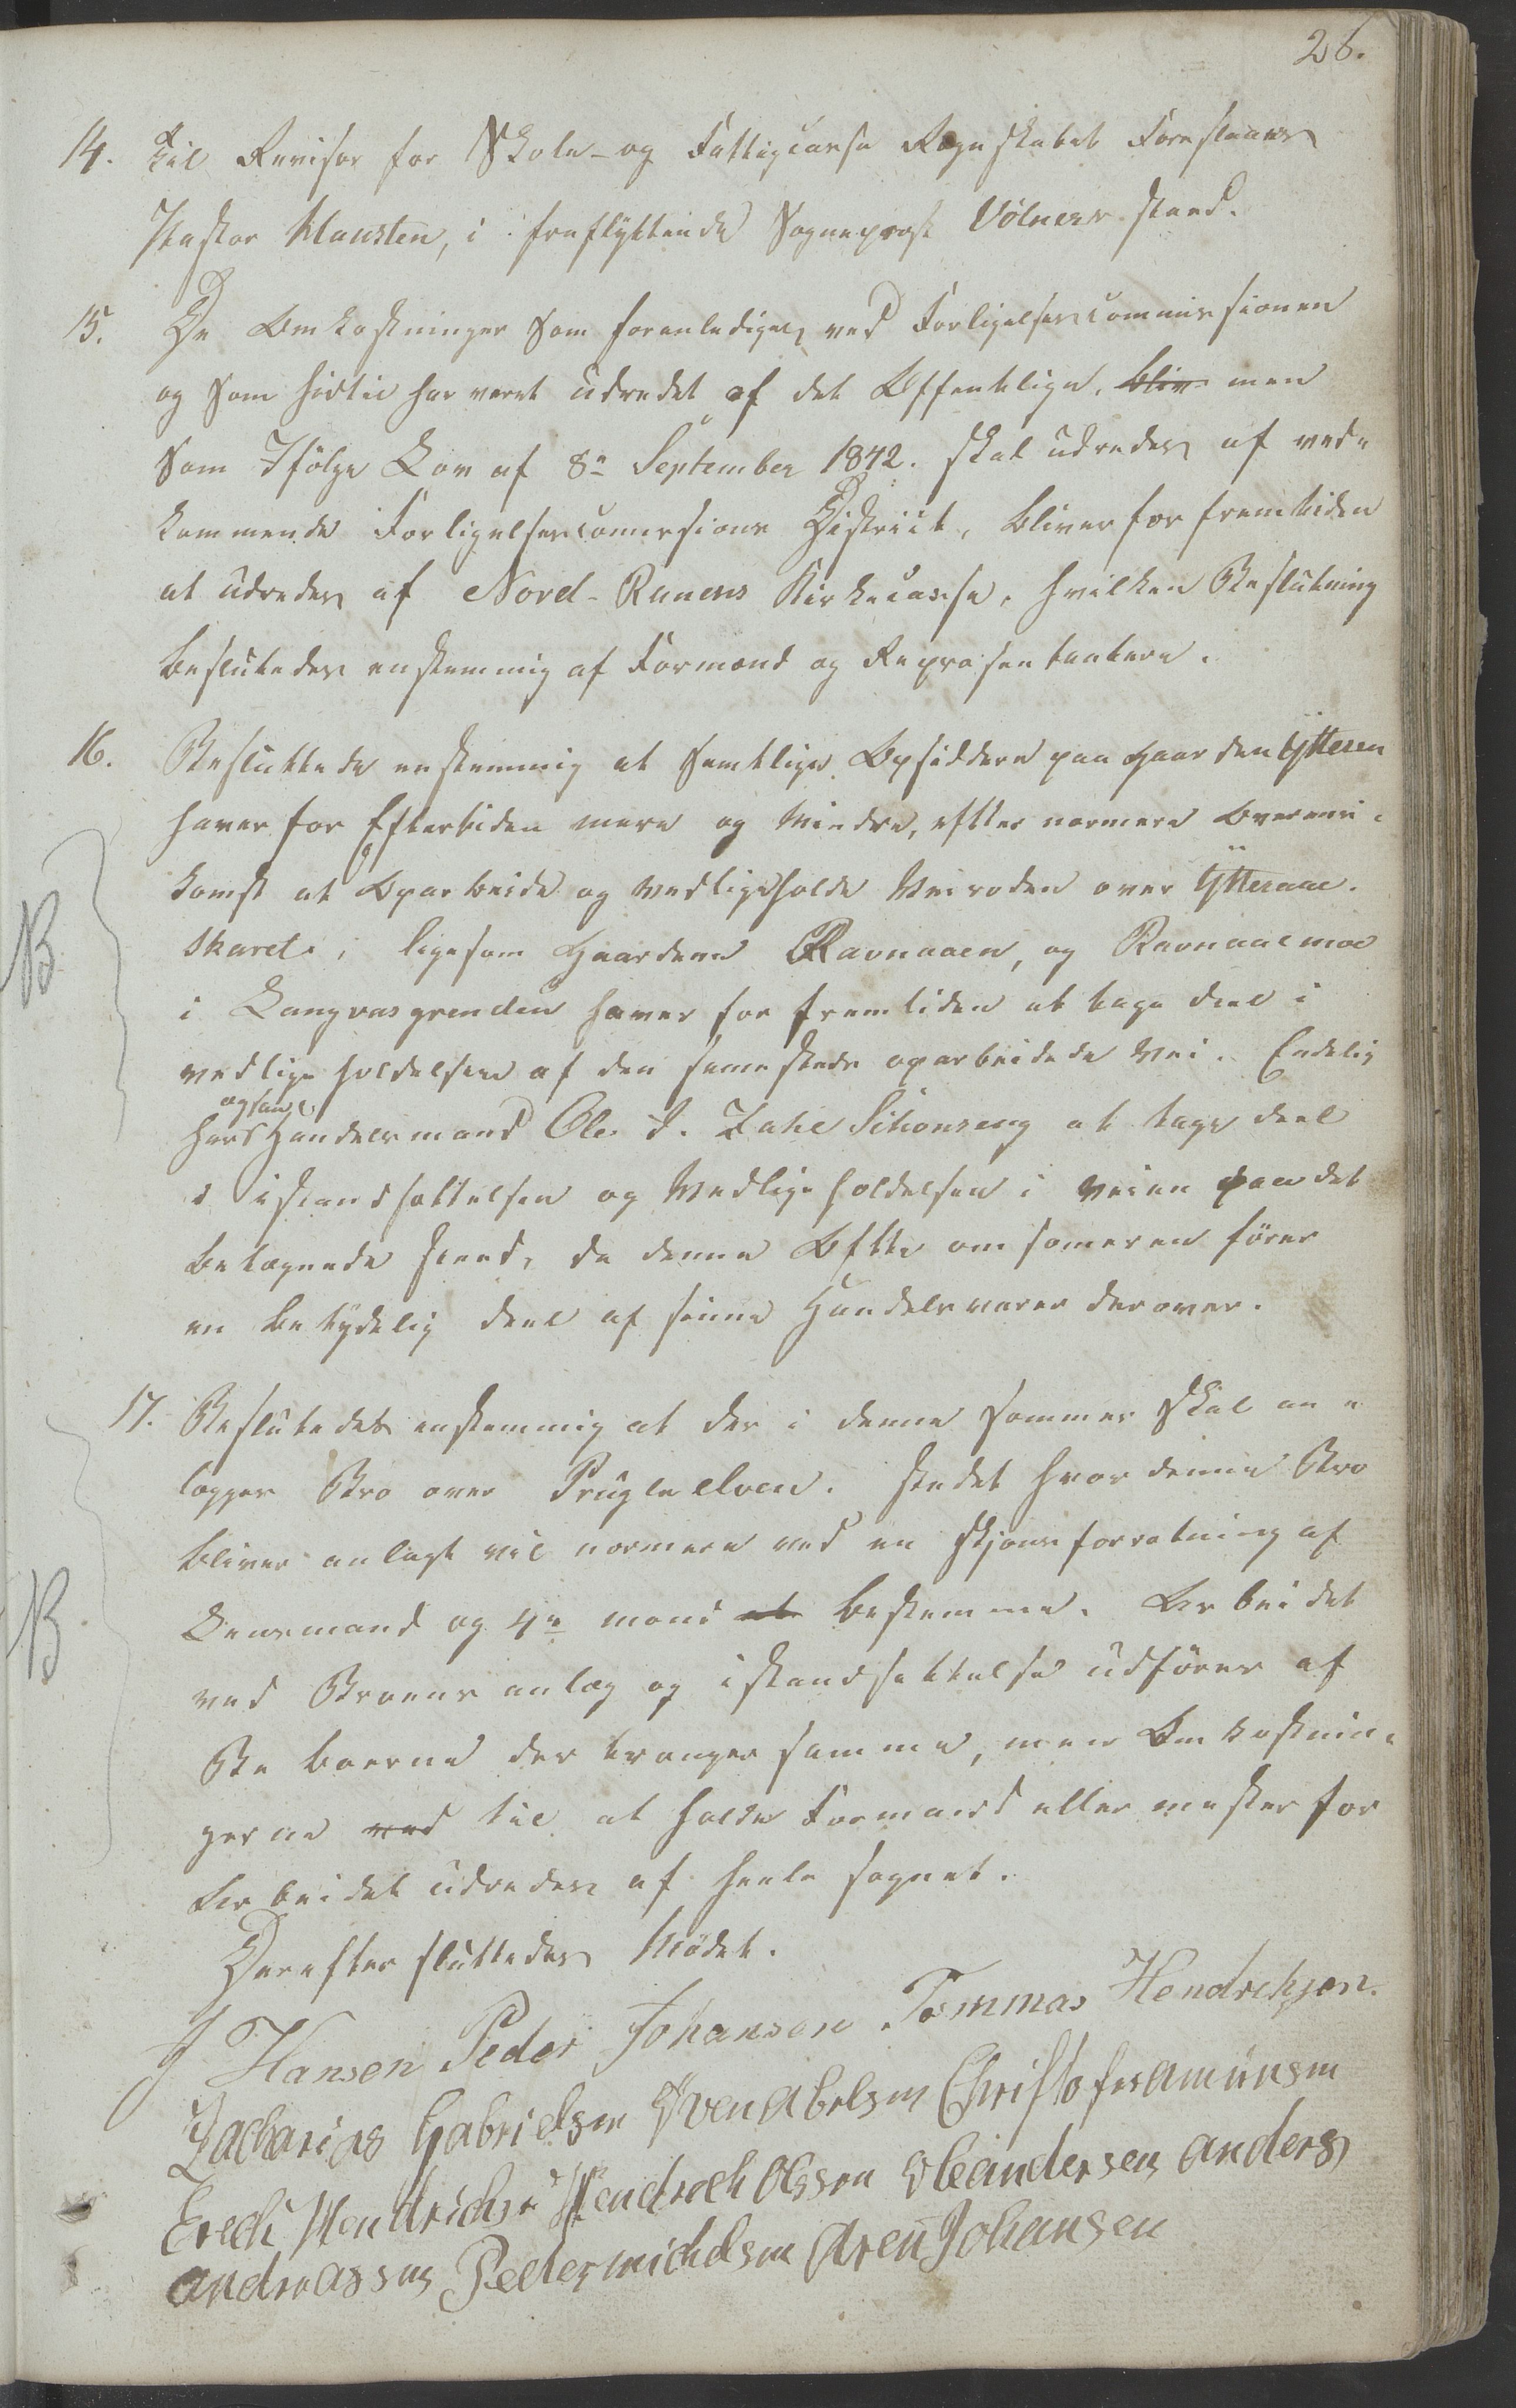 26.
14. Til Revisor for Skole- og Fattigcasse Regnskabet Foreslaaes
Pastor Hausten, i fraflyttende Sogneprest Völners sted.
15. De Omkostninger som foranlediges ved Forligelsescommissionen
og som hidtil har veret udredet af det Offentlige, bliv men
som Ifölge Lov af 8de September 1842. skal udredes af ved-
kommende Forligelsescomissions District, bliver for fremtiden
at udredes af Nord-Ranens Kirkecasse, hvilken Beslutning
beslutedes enstemmig af Formænd og Repræsentantere.
16. Besluttede enstemmig at samtlige Opsiddere paa Gaarden Ytteren
haver for Eftertiden mere og Mindre, efter nærmere Overens-
komst at Oparbeide og vedligeholde Veiroden over Ytteraae-
skaret, ligesom Gaardene Ravnaaen, og Ravnaaemoe
i Langvasgrenden haver for fremtiden at tage deel i
vedligeholdelsen af den sammesteds oparbeidede Vei. Endelig
ogsaa
har Handelsmand Ole J. Zahl Selfonseng at tage deel
i istandsættelsen og Vedligeholdelsen i Veien paa det
betegnede sted, da denne Ofte om someren förer
en betydelig deel af sinne Handelsvarer derover.
17. Beslutedes enstemmig at der i denne sommer skal an-
legges Bro over Prugleelven. stedet hvor denne Bro
bliver anlagt vil nærmere ved en Skjønsforretning af
Lensmand og 4re mænd at bestemme. Arbeidet
ved Broens anlæg og istandsettelse udföres af
Beboerne der trænger samme, men Omkostnin-
gerne ved til at holde Formand eller mester for
Arbeidet udredes af heele sognet.
Derefter sluttedes Mödet.
J Hansen Peder Johansen Tommas Hendrchsen.
Zacharias Gabrielsen Sven Abelsen Christofer amunsen
Erech Hendrichsen Hendrech Olssen Ole andersen anders
andreassen Peder michelsen Aren Johansen
B
B